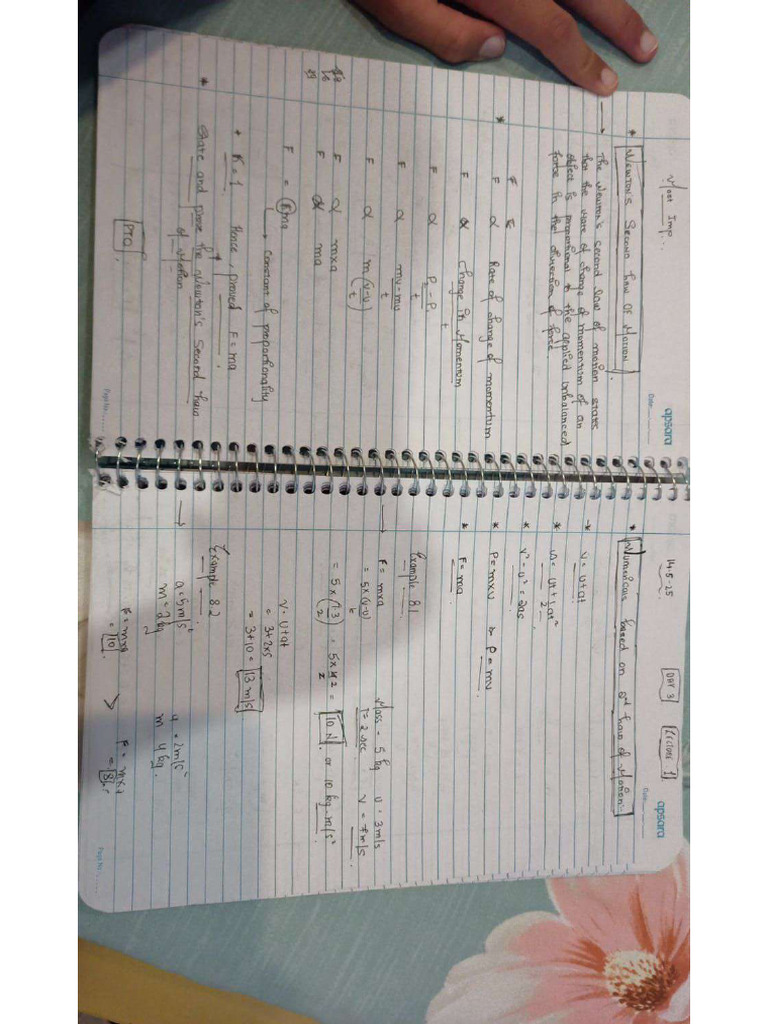 Most Imp...
apsara
Date:
* NEWTON'S SECOND LAW OF MOTION
→ The Newton's second law of motion states
that the rate of change of momentum of an
object is proportional to the applied unbalanced
force in the direction of force
* F α Rate of change of momentum
F α Change in Momentum
t
F α P₂ - P₁
t
F α mv - mu
t
F α m(v-u)
t
F α mxa
F α ma
F = Kma
→ constant of proportionality
+ K = 1 Hence, proved F = ma
* State and prove the Newton's Second law
of Motion
PTO
Page No.
14-5-25
DAY 3
LECTURE 1
apsara
Date:
* Numericals based on 2nd law of Motion:-
→* V = u+at
* s = ut + 1/2 at²
* v² - u² = 2as
* P = mxv P = mv
* F = ma
Example 8.1
→ F = mxa
Mass = 5 kg u = 3m/s
= 5 x (v-u)
t
T = 2 sec V = 7m/s
= 5 x (7-3)
2
= 5 x 4²
2
= 10 N or 10 kg-m/s²
v = u+at
= 3+2x5
= 3+10 = 13 m/s
Example 8.2
→ a = 5m/s² a = 2m/s²
m = 2kg m 4kg
F = mxa > F = mxa
= 10 = 8
Page No.